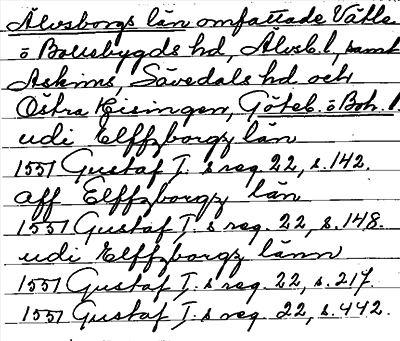 Älvsborgs län omfattade Vättle
o Bollebygds hd, Älvsb. l, samt
Askims, Sävedals hd. och
Östra Hisingen, Göteb. o Boh. l.
udi Elffzborgz län
1551 Gustaf I:s reg. 22, s. 142.
aff Elffzborgz län
1551 Gustaf I:s reg. 22, s. 148.
udi Elffzborgz länn
1551 Gustaf I:s reg. 22, s. 217.
1551 Gustaf I:s reg. 22, s. 442.